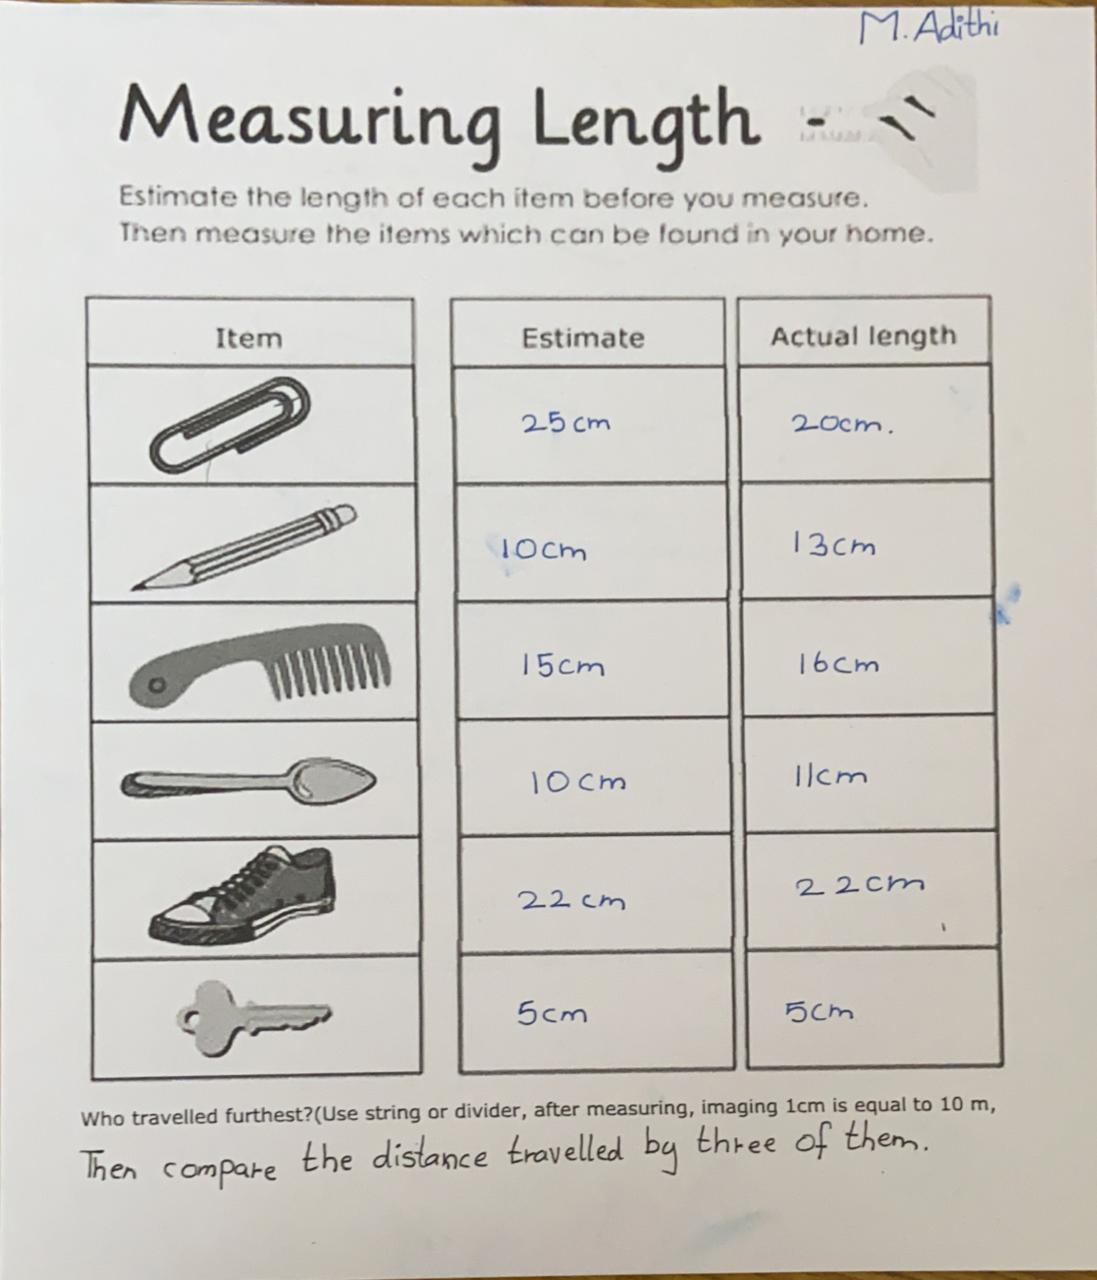 M. Adithi
Measuring Length
Estimate the length of each item before you measure.
Then measure the items which can be found in your home.
Item Estimate Actual length
25 cm 20cm.
10cm 13cm
15cm 16cm
10 cm 11cm
22 cm 22cm
5cm 5cm
Who travelled furthest?(Use string or divider, after measuring, imaging 1cm is equal to 10 m,
Then compare the distance travelled by three of them.